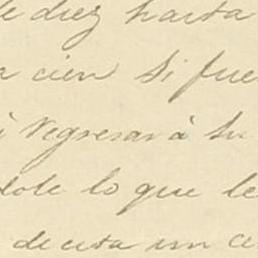 de diez hasta
a cien si fue
à regresar à su
dole lo que le
decita un ce